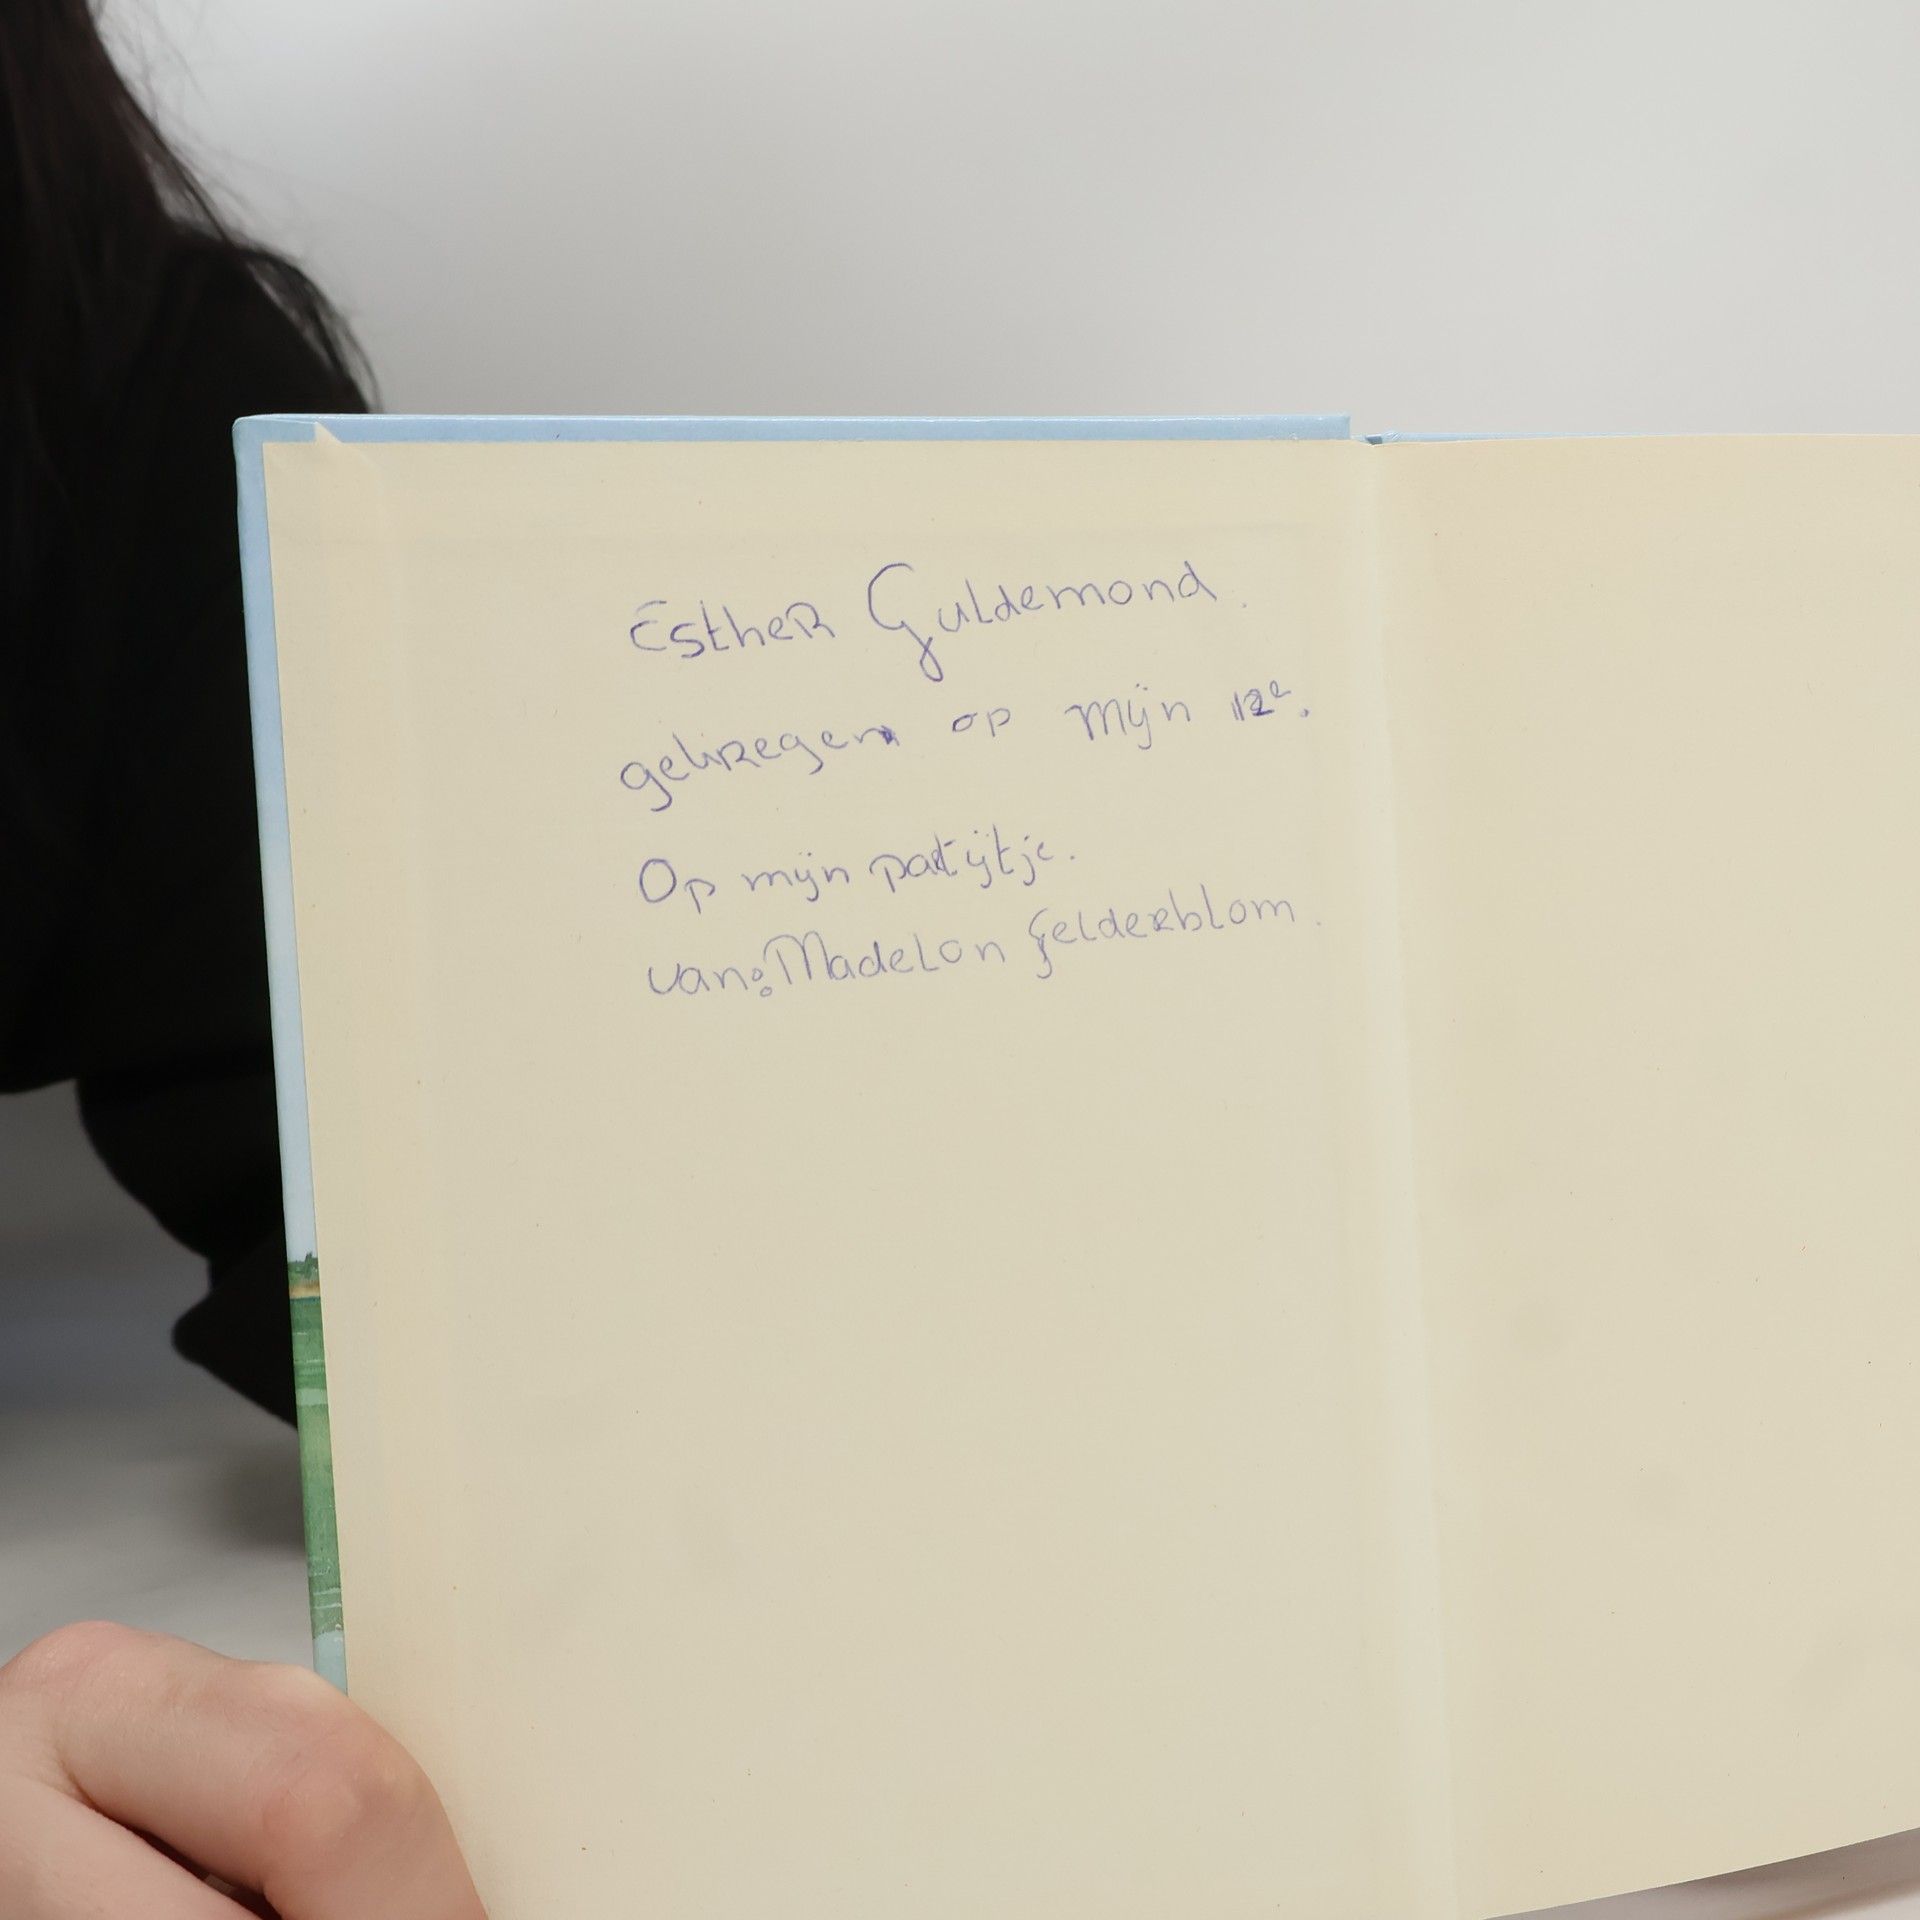 Esther Guldemond.
gekregen op mijn 12e.
Op mijn partijtje.
van: Madelon Gelderblom.